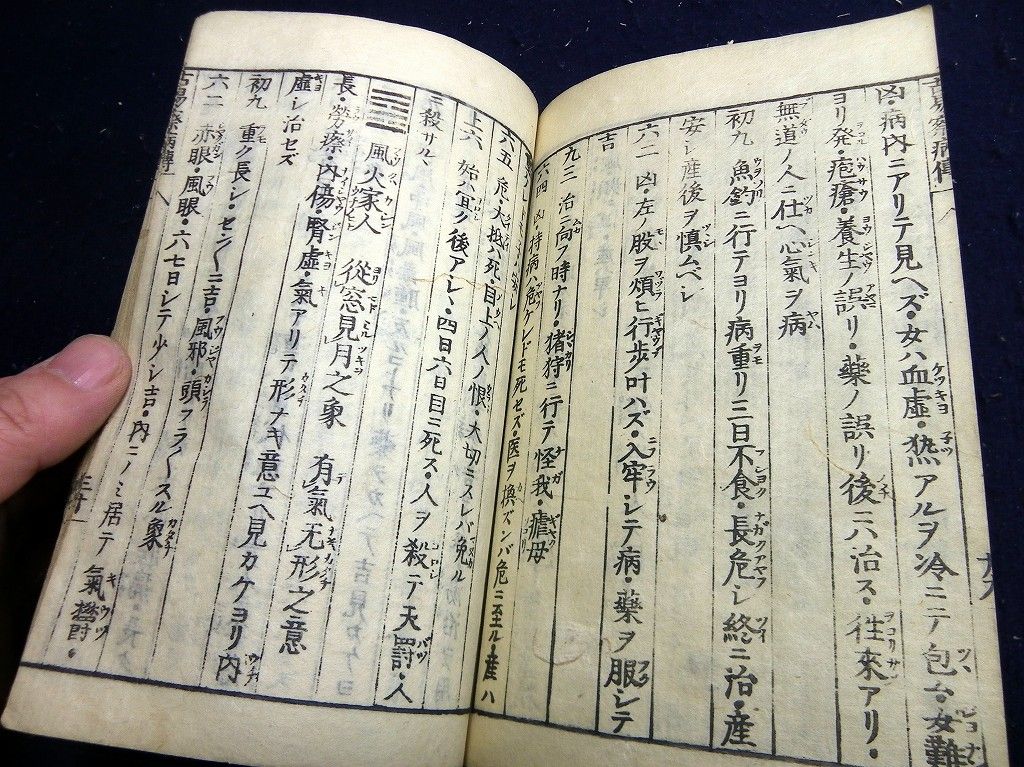 凶・病内ニアリテ見ヘズ・女ハ血虚・熱アルヲ冷ニテ包ム・女難
ヨリ発・疱瘡・養生ノ誤リ・藥ノ誤リ後ニハ治ス・往來アリ・
無道ノ人ニ仕ヘ心氣ヲ病
初九 魚釣ニ行テヨリ病重リ三日不食・長危シ終ニ治・産
安シ産後ヲ慎ムベシ
六二 凶・左ノ股ヲ煩ヒ行歩叶ハズ・入牢シテ病・藥ヲ服シテ
吉
九三 治ニ向フ時ナリ・猪狩ニ行テ怪我・瘧母
六四 凶・持病ハ危ケレドモ死セズ・医ヲ換ズンバ危ニ至ル・産ハ
六五 危・大抵ハ死・目上ノ人ノ恨・大切ニスレバ免ル
上六 始ハ宜ク後アシヽ・四日六日目ニ死ス・人ヲ殺テ天罰・人
ニ殺サル
風火家人 從窓見月之象 有氣无形之意
長・勞瘵・内傷・腎虚・氣アリテ形ナキ意ユヘ見カケヨリ内
虚シ治セズ
初九 重ク長シ・セン〱ニ吉・風邪・頭フラ〱スル象
六二 赤眼・風眼・六七日シテ少シ吉・内ニノミ居テ氣欝・
古易察病傳